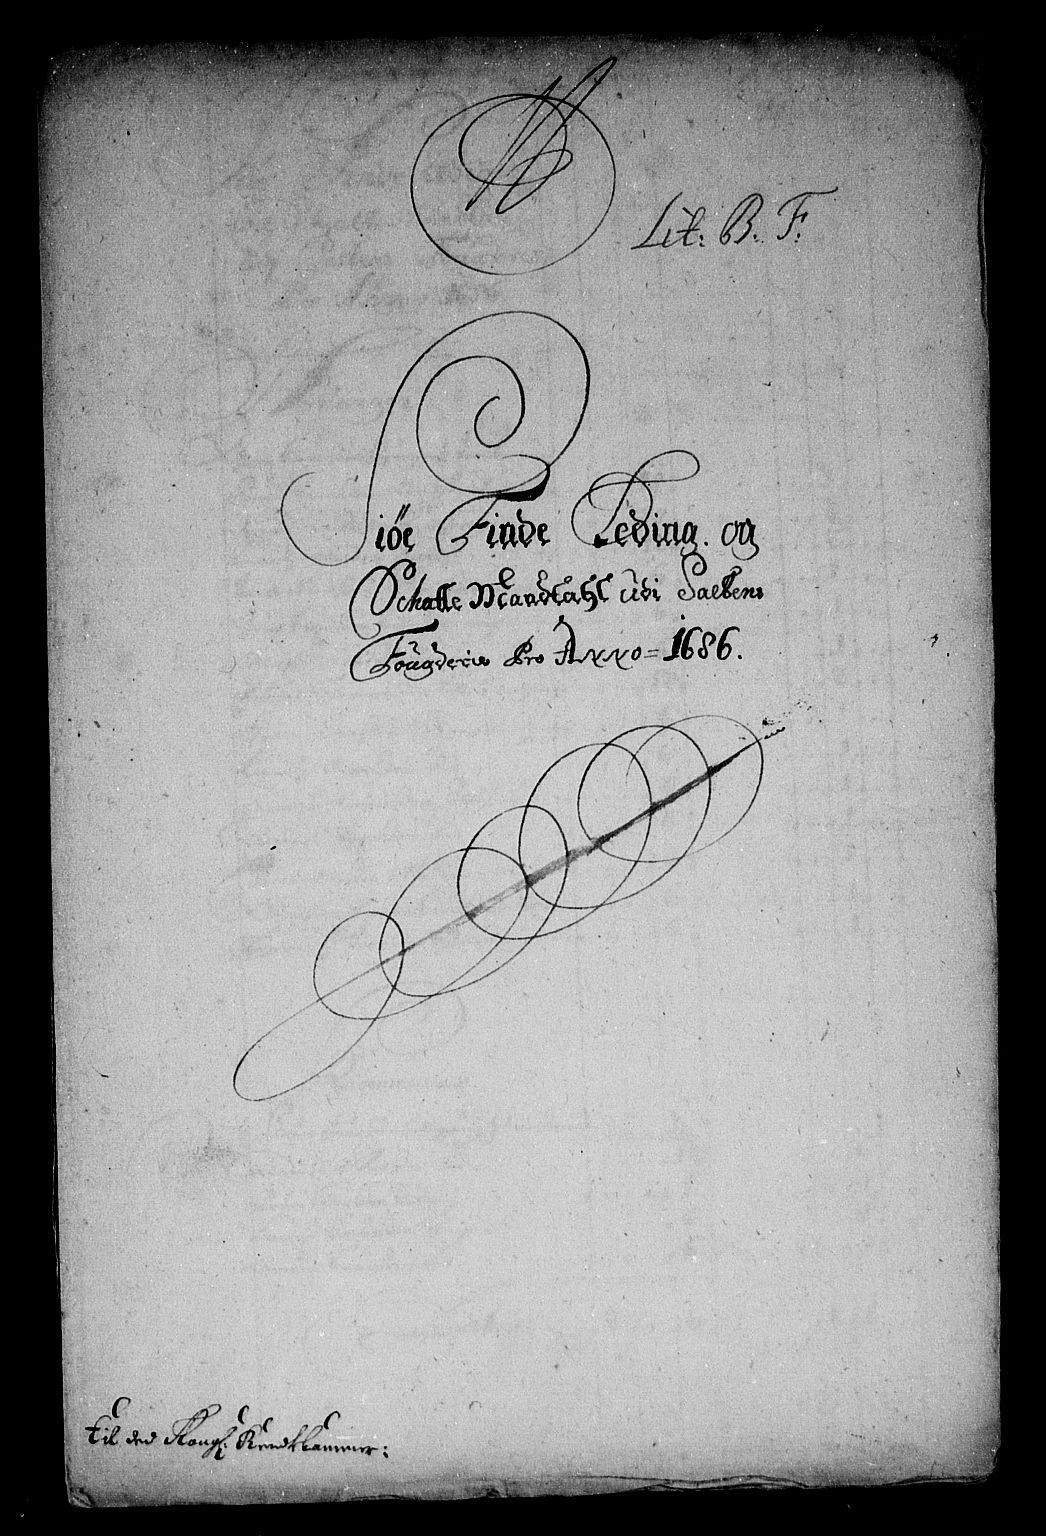 N
Lit: B. F:
Siöe Finde Leding. og
Schatte Mandtahl udi Saltens
Fougderie Pro Anno = 1686.
Til ded Kongl: Rendtkammer: